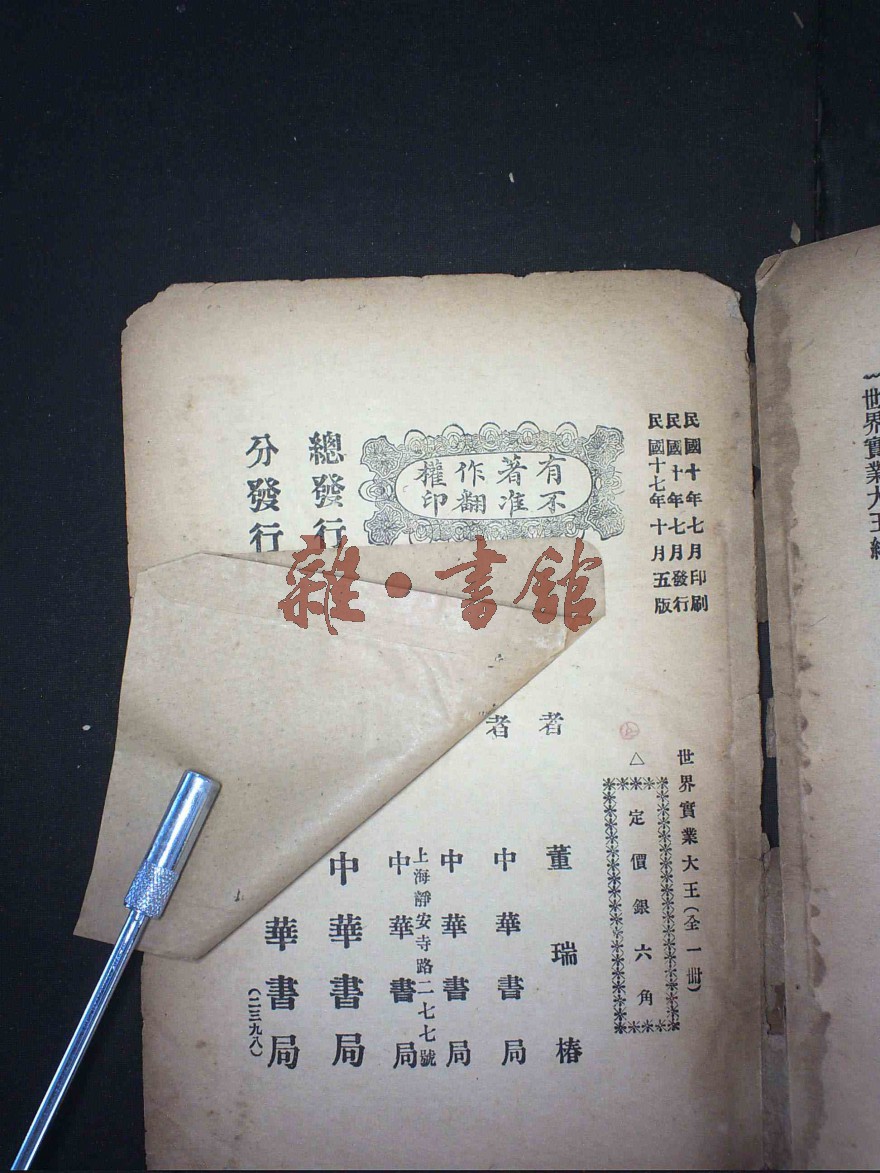 民國十年七月印刷
民國十年七月發行
民國十七年十月五版
有不著准作翻權印
總發行
分發行
雜·書館
世界實業大王(全一冊)
△定價銀六角
者 董瑞椿
者 中華書局
中華書局
上海靜安寺路二七七號
中華書局
中華書局
華書局
(二三九八)
世界實業大王